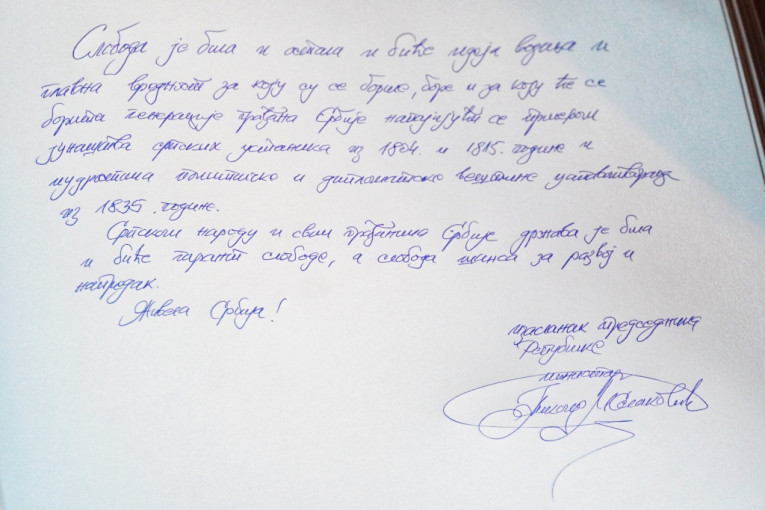 Слобода је била и остала и биће идеја водиља и
главна вредност за коју су се бориле, боре и за коју ће се
борити генерације грађана Србије напајајући се примером
јунаштва српских устаника из 1804. и 1815. године и
мудростима политичко и дипломатско вештине уставотвораца
из 1835. године.
Српском народу и свим грађанима Србије држава је била
и биће гарант слободе, а слобода шанса за развој и
напредак.
Живела Србија!
изасланик председника
Републике
министар